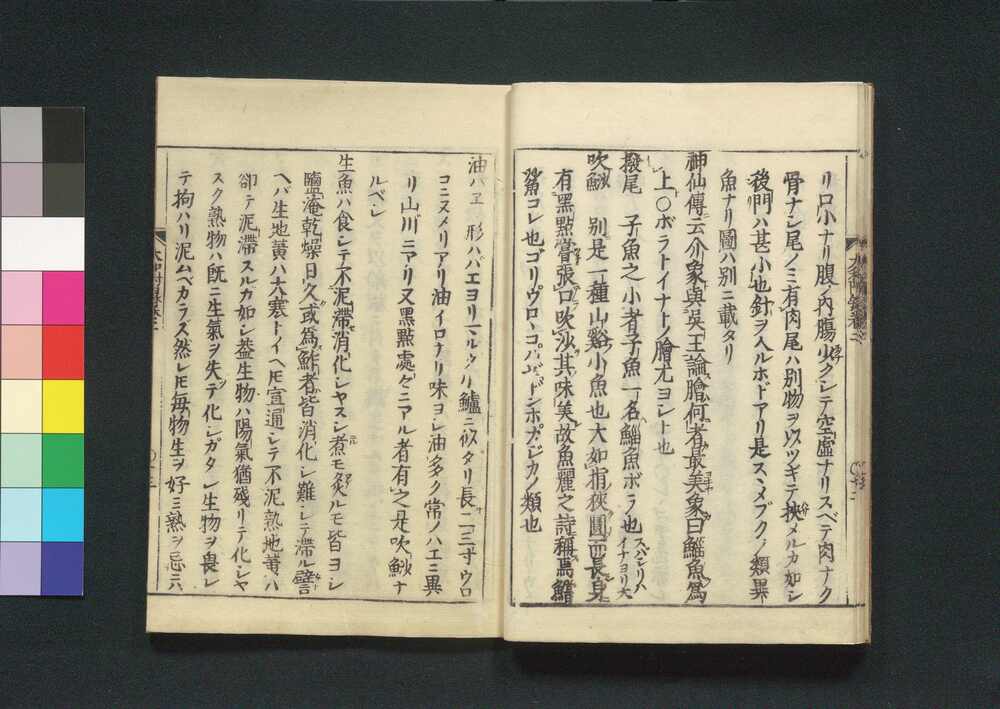 リ口小ナリ腹ノ内腸少クシテ空虚ナリスベテ肉ナク
骨ナシ尾ノミ有肉尾ハ別物ヲツギテ挾メルカ如シ
後門ハ甚小也針ヲ入ルホドアリ是スヽメブクノ類異
魚ナリ圖ハ別ニ載タリ
神仙傳云介象與吳王論膾何者最美象曰鯔魚為
上○ボラトイナトノ膾尤ヨシト也
撥尾 子魚之小者子魚一名鯔魚ボラ也スバシリハイナヨリ大
吹鯋 別是一種山谿小魚也大如指狹圓而長身
有黑點甞張口吹沙其味美故魚麗之詩稱為鱨
鯊コレ也ゴリウロヽコ ドンホ カジカノ類也
油ハヱ 形ハハエヨリ マルク 鱸ニ似タリ長二三寸ウロ
コニスメリアリ油イロナリ味ヨシ油多ク常ノハエニ異
リ山川ニアリ又黑點處々ニアル者有之是吹鯋ナ
ルベシ
生魚ハ食シテ不泥滯消化シヤスシ煮モ炙ルモ皆ヨシ
鹽淹乾燥日久或為鮓者皆消化シ難シテ滯ル譬
ヘバ生地黃ハ大寒トイヘ𪜈宣通シテ不泥熟地黃ハ
却テ泥滯スルカ如シ葢生物ハ陽氣猶殘リテ化シヤ
スク熟物ハ既ニ生氣ヲ失テ化シガタシ生物ヲ畏レ
テ拘ハリ泥ムベカラズ然レ𪜈每物生ヲ好ミ熟ヲ忌ニハ